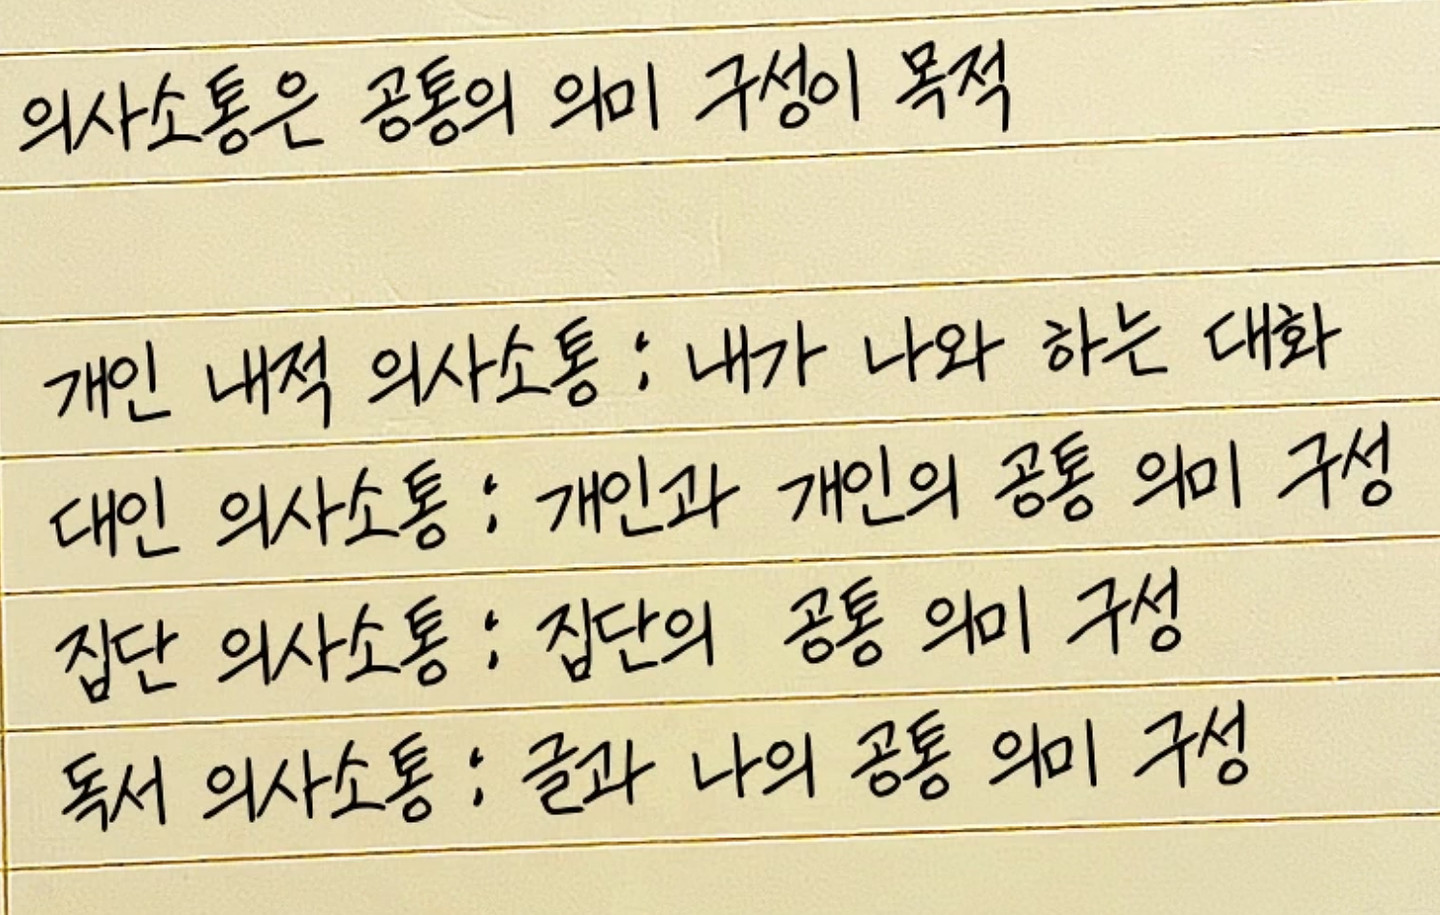 의사소통은 공통의 의미 구성이 목적
개인 내적 의사소통 : 내가 나와 하는 대화
대인 의사소통 : 개인과 개인의 공통 의미 구성
집단 의사소통 : 집단의 공통 의미 구성
독서 의사소통 : 글과 나의 공통 의미 구성